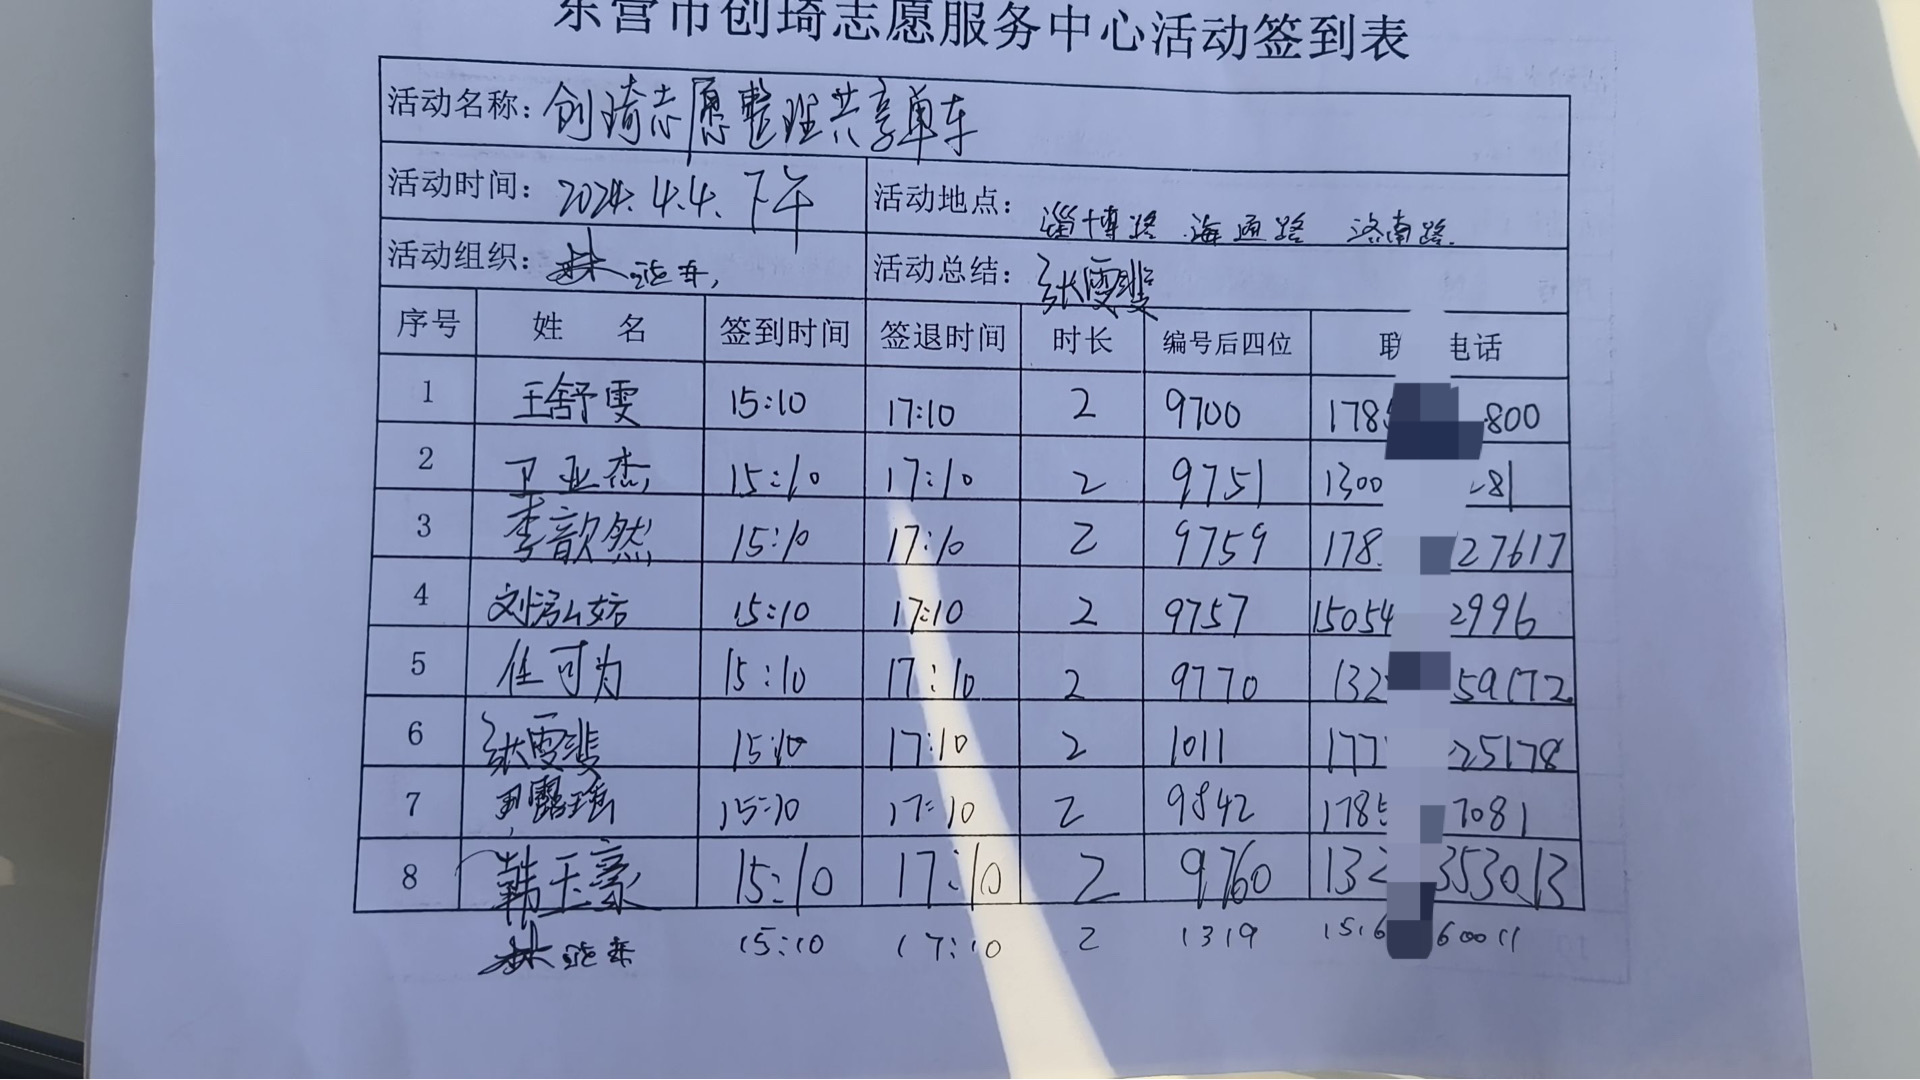 东营市创琦志愿服务中心活动签到表
活动名称: 创琦志愿整理共享单车
活动时间: 2024.4.4.下午 活动地点: 淄博路 海通路 济南路.
活动组织: 林 活动总结: 张雯斐
序号 姓 名 签到时间 签退时间 时长 编号后四位 联 电话
1 王舒雯 15:10 17:10 2 9700 178 800
2 卫亚杰 15:10 17:10 2 9751 1300 81
3 李歆然 15:10 17:10 2 9759 178 27617
4 刘泓妘 15:10 17:10 2 9757 15054 2996
5 任可为 15:10 17:10 2 9770 132 59172
6 张雯斐 15:10 17:10 2 1011 177 25178
7 露瑶 15:10 17:10 2 9842 178 7081
8 韩玉豪 15:10 17:10 2 9760 132 353013
林 15:10 17:10 2 1319 1516 60011